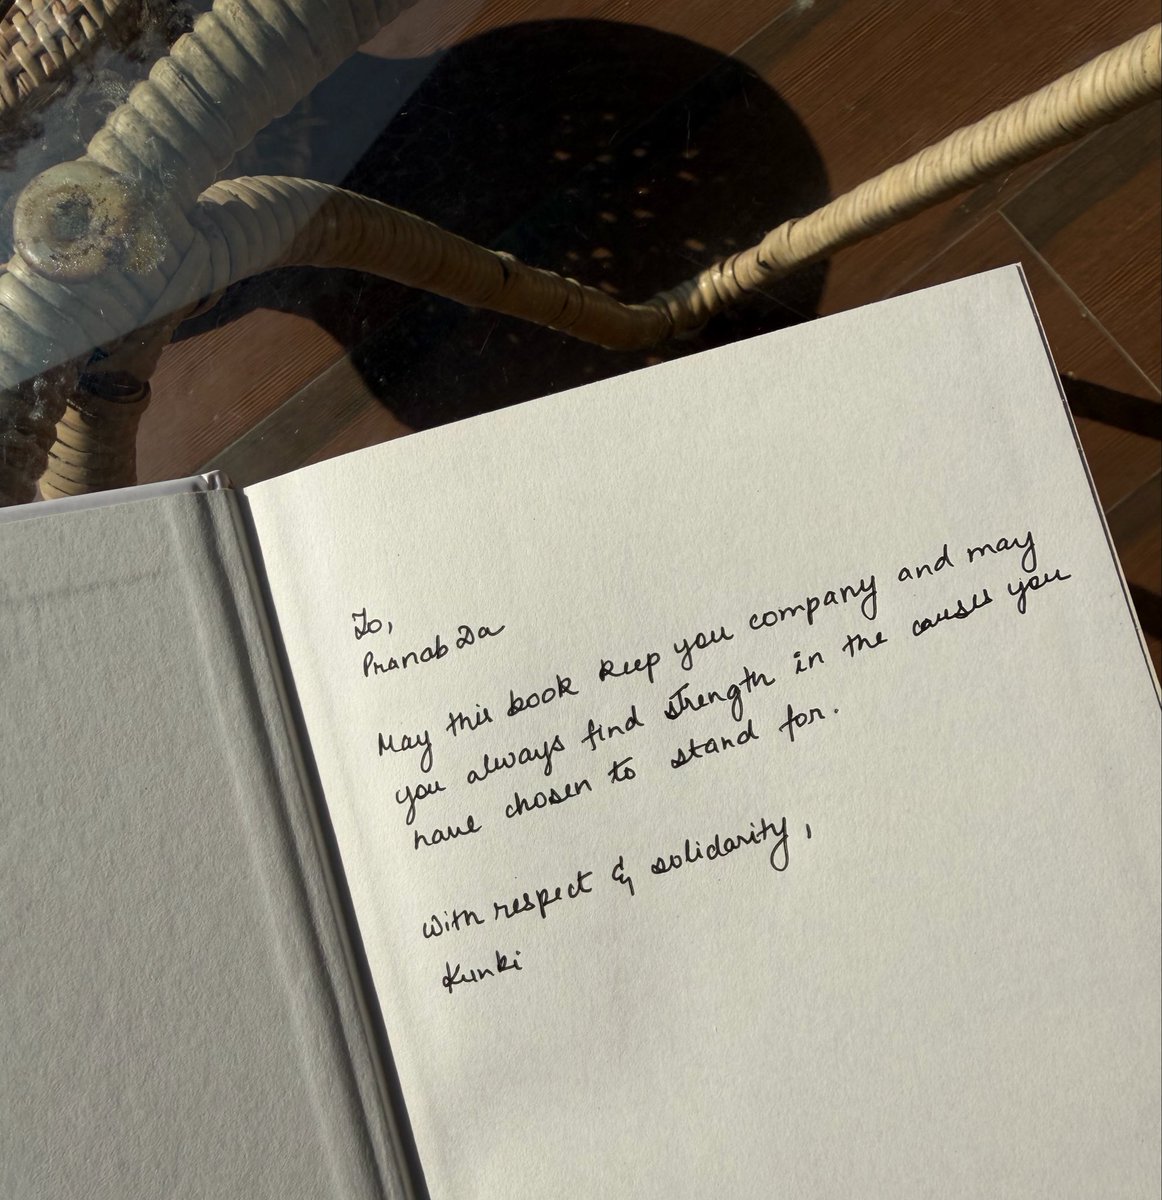 To,
Pranab Da
May this book keep you company and may
you always find strength in the causes you
have chosen to stand for.
With respect & solidarity,
Kunki